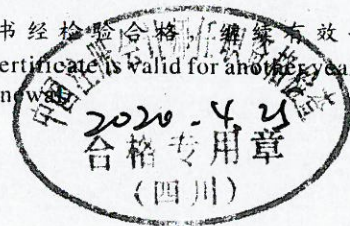 书经检验合格，继续有效
ertificate is valid for another year
newal
2020.4.25
合格专用章
（四川）